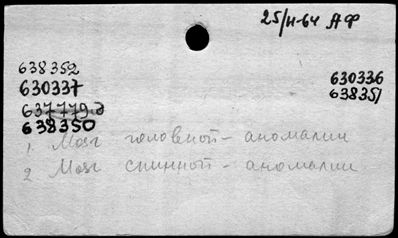 25/II-64 АФ
638352
630337
637779д
638350
630336
638351
1. Мозг головной - аномалии
2 Мозг спинной - аномалии